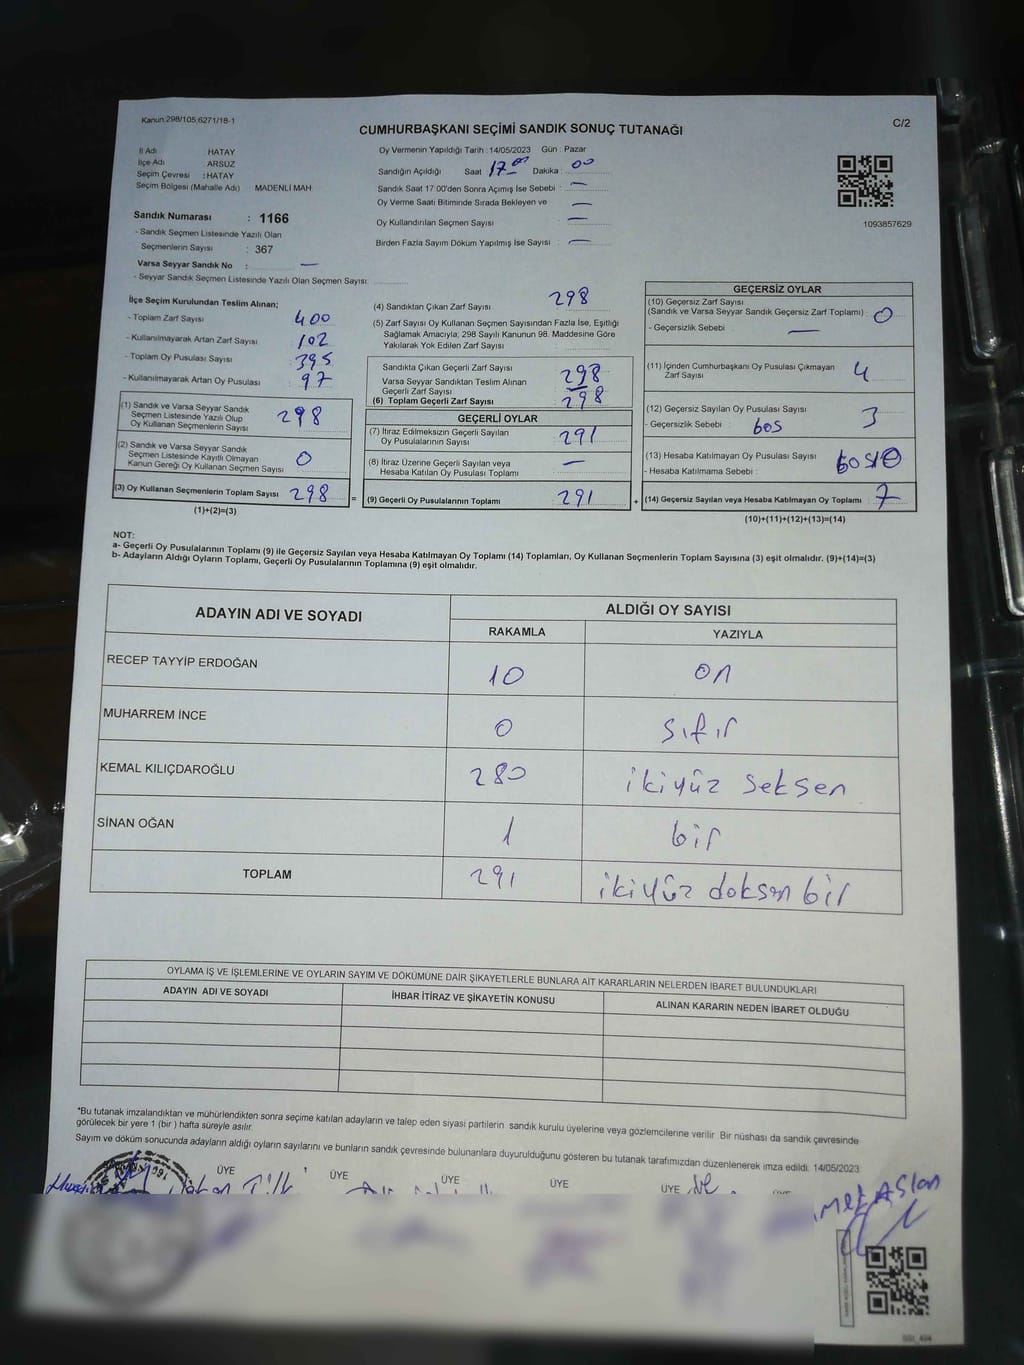 Kanun:298/105,6271/18-1
C/2
CUMHURBAŞKANI SEÇİMİ SANDIK SONUÇ TUTANAĞI
İl Adı : HATAY
İlçe Adı : ARSUZ
Seçim Çevresi : HATAY
Seçim Bölgesi (Mahalle Adı) MADENLİ MAH
Sandık Numarası : 1166
- Sandık Seçmen Listesinde Yazılı Olan
Seçmenlerin Sayısı : 367
Varsa Seyyar Sandık No : —
- Seyyar Sandık Seçmen Listesinde Yazılı Olan Seçmen Sayısı:
Oy Vermenin Yapıldığı Tarih : 14/05/2023 Gün : Pazar
Sandığın Açıldığı Saat 17.00 Dakika : 00
Sandık Saat 17.00'den Sonra Açımış İse Sebebi : —
Oy Verme Saati Bitiminde Sırada Bekleyen ve —
Oy Kullandırılan Seçmen Sayısı : —
Birden Fazla Sayım Döküm Yapılmış İse Sayısı : —
1093857629
İlçe Seçim Kurulundan Teslim Alınan;
- Toplam Zarf Sayısı : 400
- Kullanılmayarak Artan Zarf Sayısı : 102
- Toplam Oy Pusulası Sayısı : 395
- Kullanılmayarak Artan Oy Pusulası : 97
(1) Sandık ve Varsa Seyyar Sandık
Seçmen Listesinde Yazılı Olup
Oy Kullanan Seçmenlerin Sayısı : 298
(2) Sandık ve Varsa Seyyar Sandık
Seçmen Listesinde Kayıtlı Olmayan
Kanun Gereği Oy Kullanan Seçmen Sayısı : 0
(3) Oy Kullanan Seçmenlerin Toplam Sayısı : 298 =
(1)+(2)=(3)
(4) Sandıktan Çıkan Zarf Sayısı 298
(5) Zarf Sayısı Oy Kullanan Seçmen Sayısından Fazla İse, Eşitliği
Sağlamak Amacıyla; 298 Sayılı Kanunun 98. Maddesine Göre
Yakılarak Yok Edilen Zarf Sayısı :
Sandıkta Çıkan Geçerli Zarf Sayısı : 298
Varsa Seyyar Sandıktan Teslim Alınan
Geçerli Zarf Sayısı : —
(6) Toplam Geçerli Zarf Sayısı : 298
GEÇERLİ OYLAR
(7) İtiraz Edilmeksizin Geçerli Sayılan
Oy Pusulalarının Sayısı : 291
(8) İtiraz Üzerine Geçerli Sayılan veya
Hesaba Katılan Oy Pusulası Toplamı : —
(9) Geçerli Oy Pusulalarının Toplamı : 291 +
GEÇERSİZ OYLAR
(10) Geçersiz Zarf Sayısı
(Sandık ve Varsa Seyyar Sandık Geçersiz Zarf Toplamı) : 0
- Geçersizlik Sebebi : —
(11) İçinden Cumhurbaşkanı Oy Pusulası Çıkmayan
Zarf Sayısı : 4
(12) Geçersiz Sayılan Oy Pusulası Sayısı : 3
- Geçersizlik Sebebi : boş
(13) Hesaba Katılmayan Oy Pusulası Sayısı : 0
- Hesaba Katılmama Sebebi :
(14) Geçersiz Sayılan veya Hesaba Katılmayan Oy Toplamı : 7
(10)+(11)+(12)+(13)=(14)
NOT:
a- Geçerli Oy Pusulalarının Toplamı (9) ile Geçersiz Sayılan veya Hesaba Katılmayan Oy Toplamı (14) Toplamları, Oy Kullanan Seçmenlerin Toplam Sayısına (3) eşit olmalıdır. (9)+(14)=(3)
b- Adayların Aldığı Oyların Toplamı, Geçerli Oy Pusulalarının Toplamına (9) eşit olmalıdır.
ADAYIN ADI VE SOYADI ALDIĞI OY SAYISI
RAKAMLA YAZIYLA
RECEP TAYYİP ERDOĞAN 10 on
MUHARREM İNCE 0 sıfır
KEMAL KILIÇDAROĞLU 280 ikiyüz seksen
SİNAN OĞAN 1 bir
TOPLAM 291 ikiyüz doksan bir
OYLAMA İŞ VE İŞLEMLERİNE VE OYLARIN SAYIM VE DÖKÜMÜNE DAİR ŞİKAYETLERLE BUNLARA AİT KARARLARIN NELERDEN İBARET BULUNDUKLARI
ADAYIN ADI VE SOYADI İHBAR İTİRAZ VE ŞİKAYETİN KONUSU ALINAN KARARIN NEDEN İBARET OLDUĞU
*Bu tutanak imzalandıktan ve mühürlendikten sonra seçime katılan adayların ve talep eden siyasi partilerin sandık kurulu üyelerine veya gözlemcilerine verilir. Bir nüshası da sandık çevresinde
görülecek bir yere 1 (bir ) hafta süreyle asılır.
Sayım ve döküm sonucunda adayların aldığı oyların sayılarını ve bunların sandık çevresinde bulunanlara duyurulduğunu gösteren bu tutanak tarafımızdan düzenlenerek imza edildi. 14/05/2023
ÜYE ÜYE ÜYE ÜYE ÜYE
ASLAN